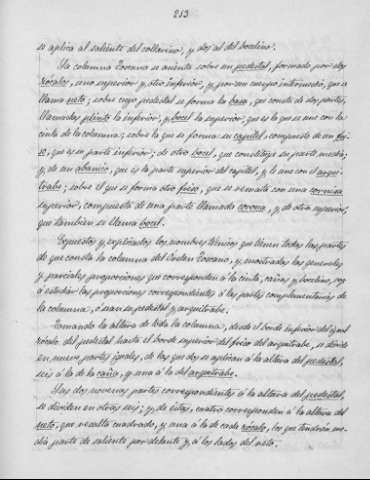 213
se aplica al saliente del collarino, y dos al del bocelino.
La columna Toscana se asienta sobre un pedestal, formado por dos
zócalos, uno superior y otro inferior, y por un cuerpo intermedio, que se
llama neto; sobre cuyo pedestal se forma la basa, que consta de dos partes,
llamadas plinto la inferior, y bocel la superior; que es la que se une con la
cinta de la columna; sobre la que se forma su capitel, compuesto de un fri-
so, que es su parte inferior; de otro bocel, que constituye su parte media;
y de un abanico, que es la parte superior del capitel, y le une con el arqui-
trabe; sobre el que se forma otro friso, que se remata con una cornisa
superior, compuesta de una parte llamada corona, y de otra superior,
que tambien se llama bocel.
Expuestos y explicados los nombres técnicos que tienen todas las partes
de que consta la columna del Orden Toscano, y mostradas las generales
y parciales proporciones que corresponden á la cinta, caña y bocelino, voy
á estudiar las proporciones correspondientes á las partes complementarias de
la columna, ó sean su pedestal y arquitrabe.
Tomando la altura de toda la columna, desde el borde inferior del
zócalo del pedestal hasta el borde superior del friso del arquitrabe, se divide
en nueve partes iguales, de las que dos se aplican á la altura del pedestal,
seis á la de la caña, y una á la del arquitrabe.
Las dos novenas partes correspondientes á la altura del pedestal,
se dividen en otras seis; y, de éstas, cuatro corresponden á la altura del
neto, que resulta cuadrado, y una á la de cada zócalo, los que tendrán me-
dia parte de saliente por delante y á los lados del neto.